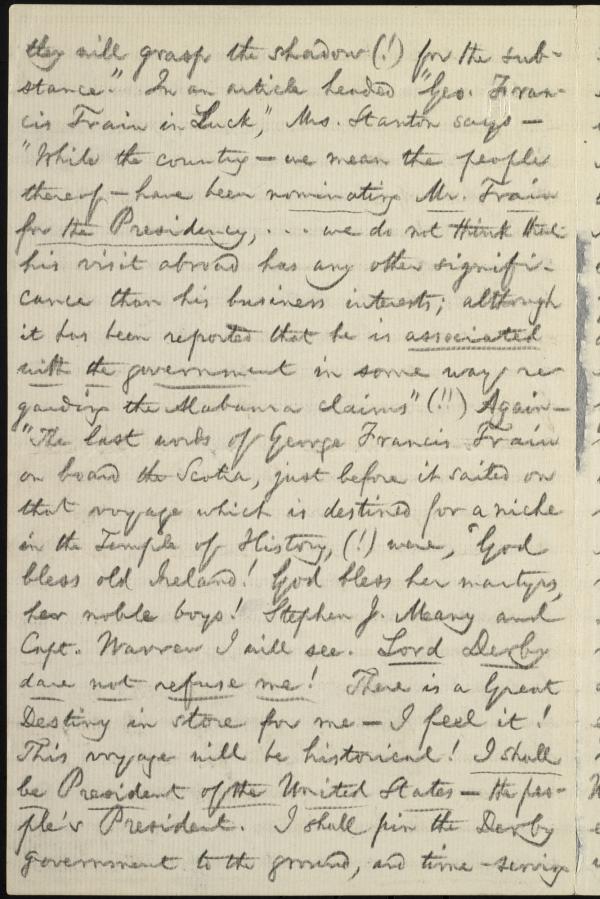 they will grasp the shadow (!) for the sub-
stance." In an article headed "Geo. Fran-
cis Train in Luck," Mrs. Stanton says —
"While the country — we mean the people
thereof — have been nominating Mr. Train
for the Presidency, . . . we do not think that
his visit abroad has any other signifi-
cance than his business interests; although
it has been reported that he is associated
with the government in some way re-
garding the Alabama claims" (!!) Again —
"The last words of George Francis Train
on board the Scotia, just before it sailed on
that voyage which is destined for a niche
in the Temple of History, (!) were, "God
bless old Ireland! God bless her martyrs,
her noble boys! Stephen J. Meany and
Capt. Warren I will see. Lord Derby
dare not refuse me! There is a Great
Destiny in store for me — I feel it!
This voyage will be historical! I shall
be President of the United States — the peo-
ple's President. I shall pin the Derby
government to the ground, and time-serving